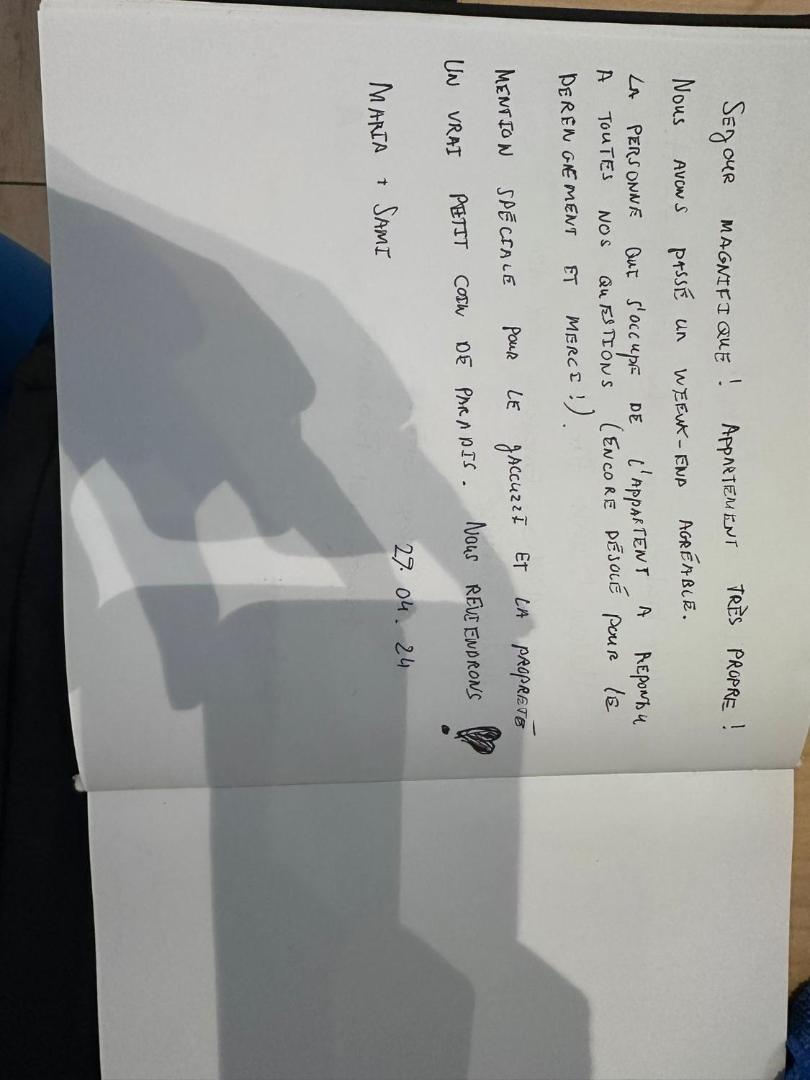 SEJOUR MAGNIFIQUE ! APPARTEMENT TRÈS PROPRE !
NOUS AVONS PASSÉ UN WEEUK-END AGRÉABLE.
LA PERSONNE QUI S'OCCUPE DE L'APPARTENT A REPONDU
A TOUTES NOS QUESTIONS (ENCORE DÉSOLÉ POUR LE
DERENGEMENT ET MERCI !).
MENTION SPÉCIALE POUR LE JACCUZZI ET LA PROPRETÉ
UN VRAI PETIT COIN DE PARADIS. NOUS REVIENDRONS ! ♥
27. 04. 24
MARIA + SAMI